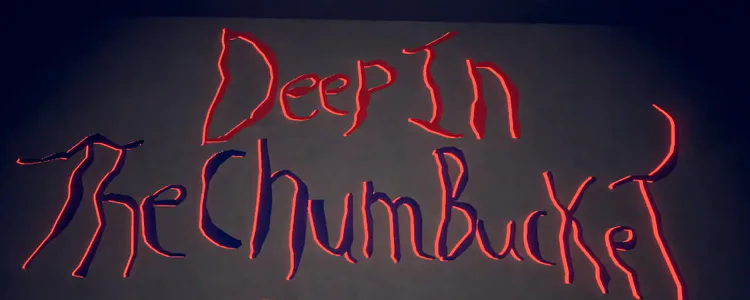 Deep In
The ChumBucket